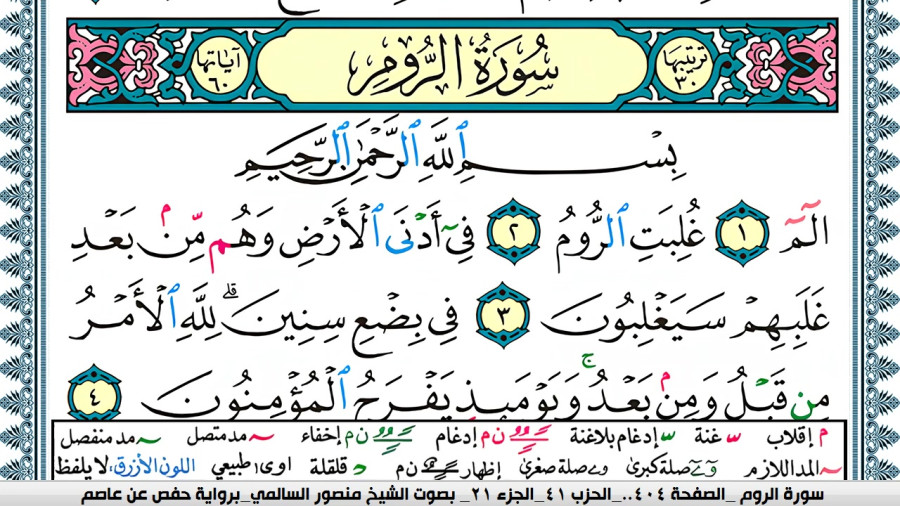 ترتيبها ٣٠ سُورَةُ الرُّومِ آياتها ٦٠
بِسْمِ ٱللَّهِ ٱلرَّحْمَٰنِ ٱلرَّحِيمِ
الٓمٓ ١ غُلِبَتِ ٱلرُّومُ ٢ فِىٓ أَدْنَى ٱلْأَرْضِ وَهُم مِّنۢ بَعْدِ
غَلَبِهِمْ سَيَغْلِبُونَ ٣ فِى بِضْعِ سِنِينَ ۗ لِلَّهِ ٱلْأَمْرُ
مِن قَبْلُ وَمِنۢ بَعْدُ ۚ وَيَوْمَئِذٍ يَفْرَحُ ٱلْمُؤْمِنُونَ ٤
م إقلاب س غنة س إدغام بلاغنة ن م إدغام ن م إخفاء مد متصل مد منفصل
المد اللازم صلة كبرى صلة صغرى إظهار ن م د قلقلة اوى ا طبيعي اللون الأزرق: لا يلفظ
سورة الروم _الصفحة ٤٠٤.._الحزب ٤١_الجزء ٢١_ بصوت الشيخ منصور السالمي_برواية حفص عن عاصم